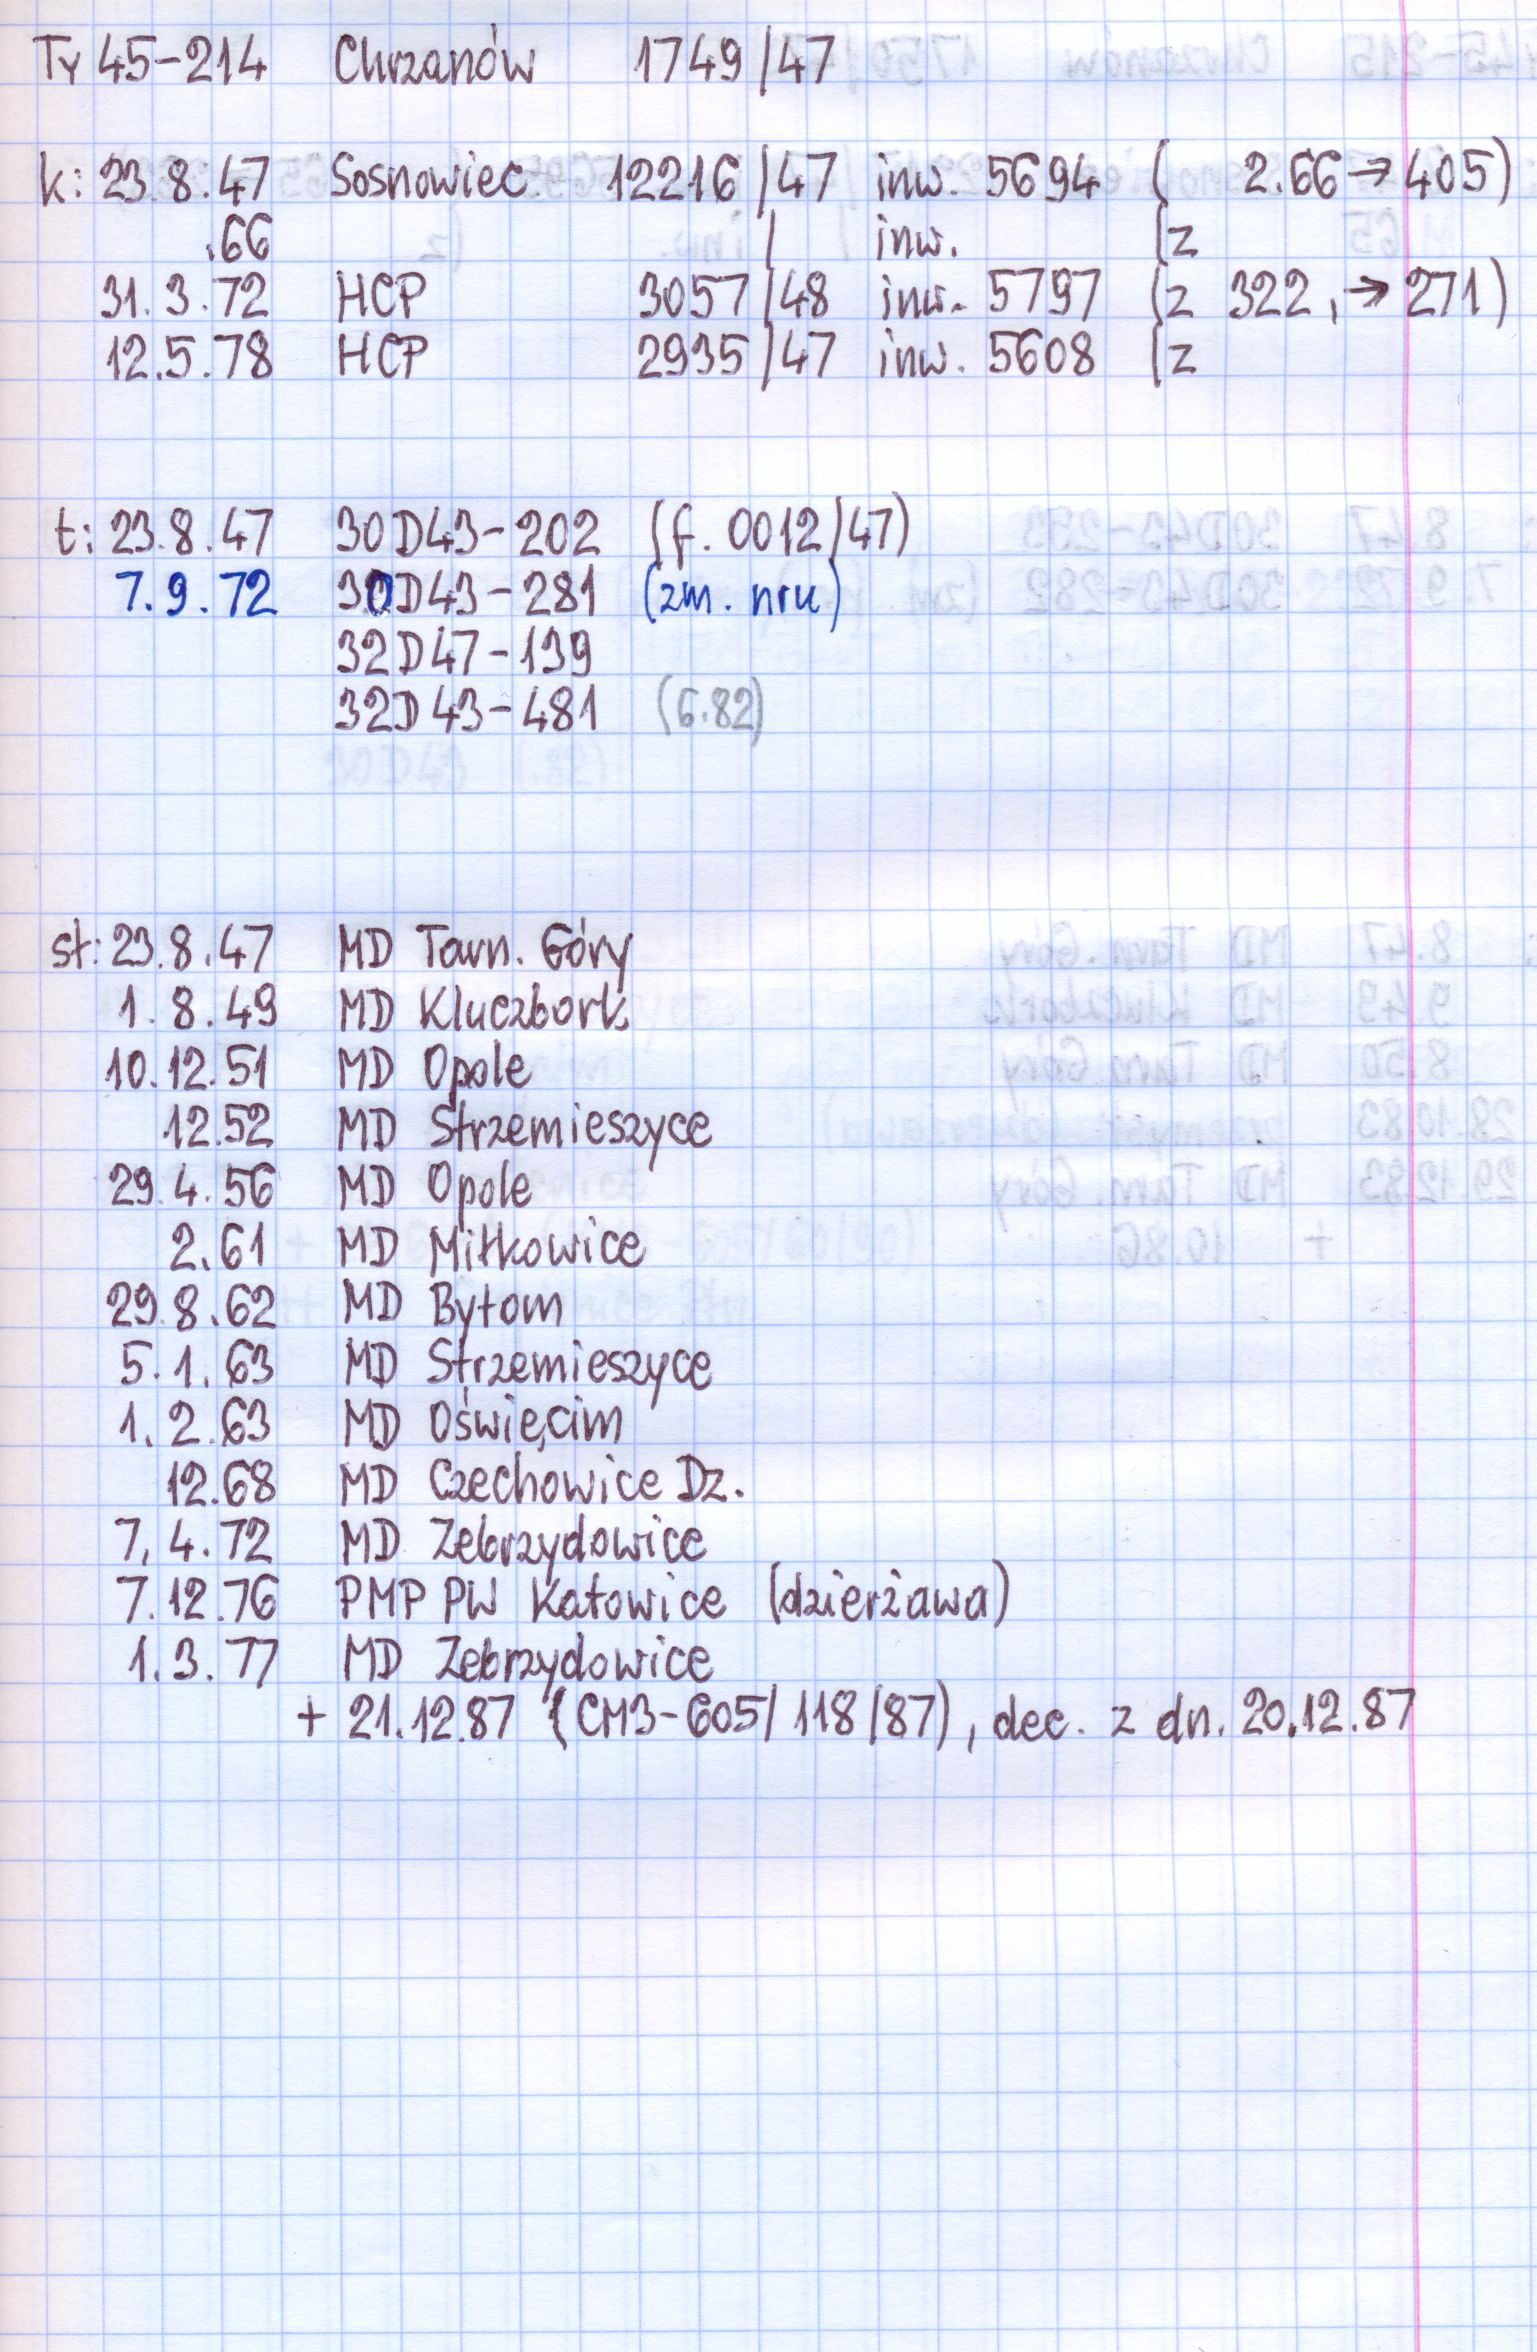 Ty 45-214 Chrzanów 1749/47
k: 23.8.47 Sosnowiec 12216/47 inw. 5694 ( 2.66 → 405)
.66 / inw. (z
31.3.72 HCP 3057/48 inw. 5797 (z 322, → 271)
12.5.78 HCP 2935/47 inw. 5608 (z
t: 23.8.47 30D43-202 (f. 0012/47)
7.9.72 30D43-281 (zm. nru)
32D47-139
32D43-481 (6.82)
st: 23.8.47 MD Tarn. Góry
1.8.49 MD Kluczbork
10.12.51 MD Opole
12.52 MD Strzemieszyce
29.4.56 MD Opole
2.61 MD Miłkowice
29.8.62 MD Bytom
5.1.63 MD Strzemieszyce
1.2.63 MD Oświęcim
12.68 MD Czechowice Dz.
7.4.72 MD Zebrzydowice
7.12.76 PMP PW Katowice (dzierżawa)
1.3.77 MD Zebrzydowice
+ 21.12.87 (CM3-605/118/87), dec. z dn. 20.12.87